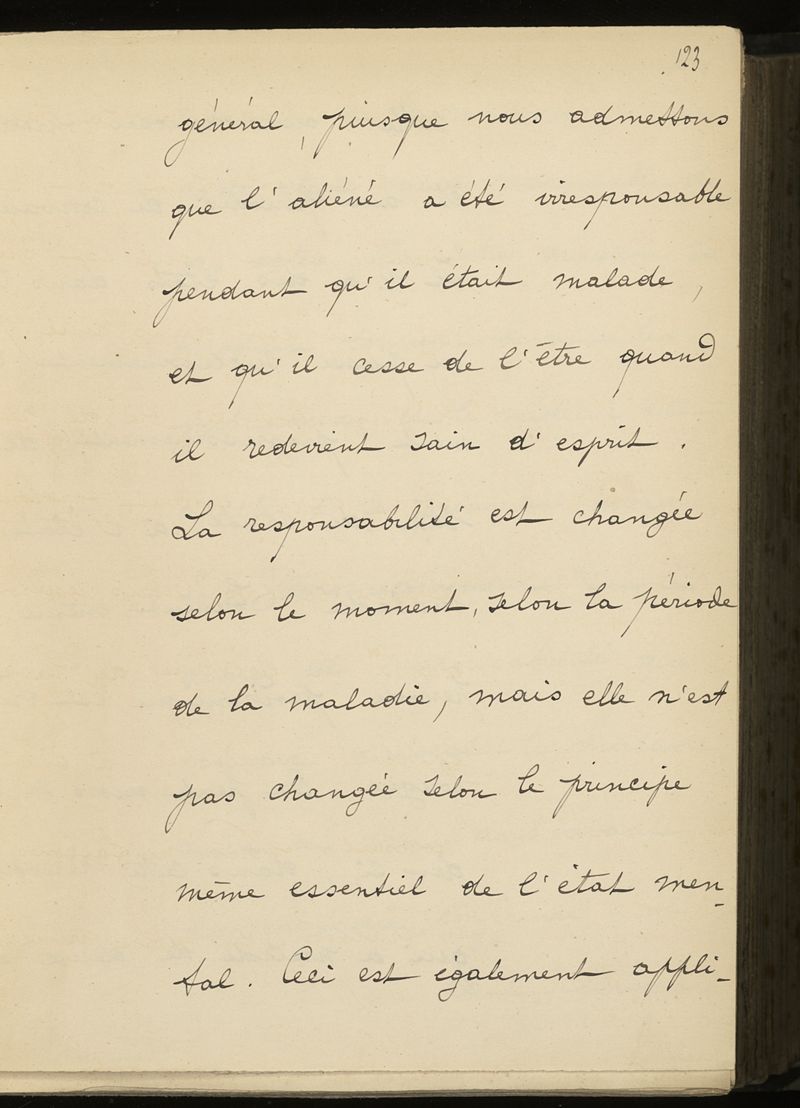 123
général, puisque nous admettons
que l'aliéné a été irresponsable
pendant qu'il était malade,
et qu'il cesse de l'être quand
il redevient sain d'esprit.
La responsabilité est changée
selon le moment, selon la période
de la maladie, mais elle n'est
pas changée selon le principe
même essentiel de l'état men-
tal. Ceci est également appli-